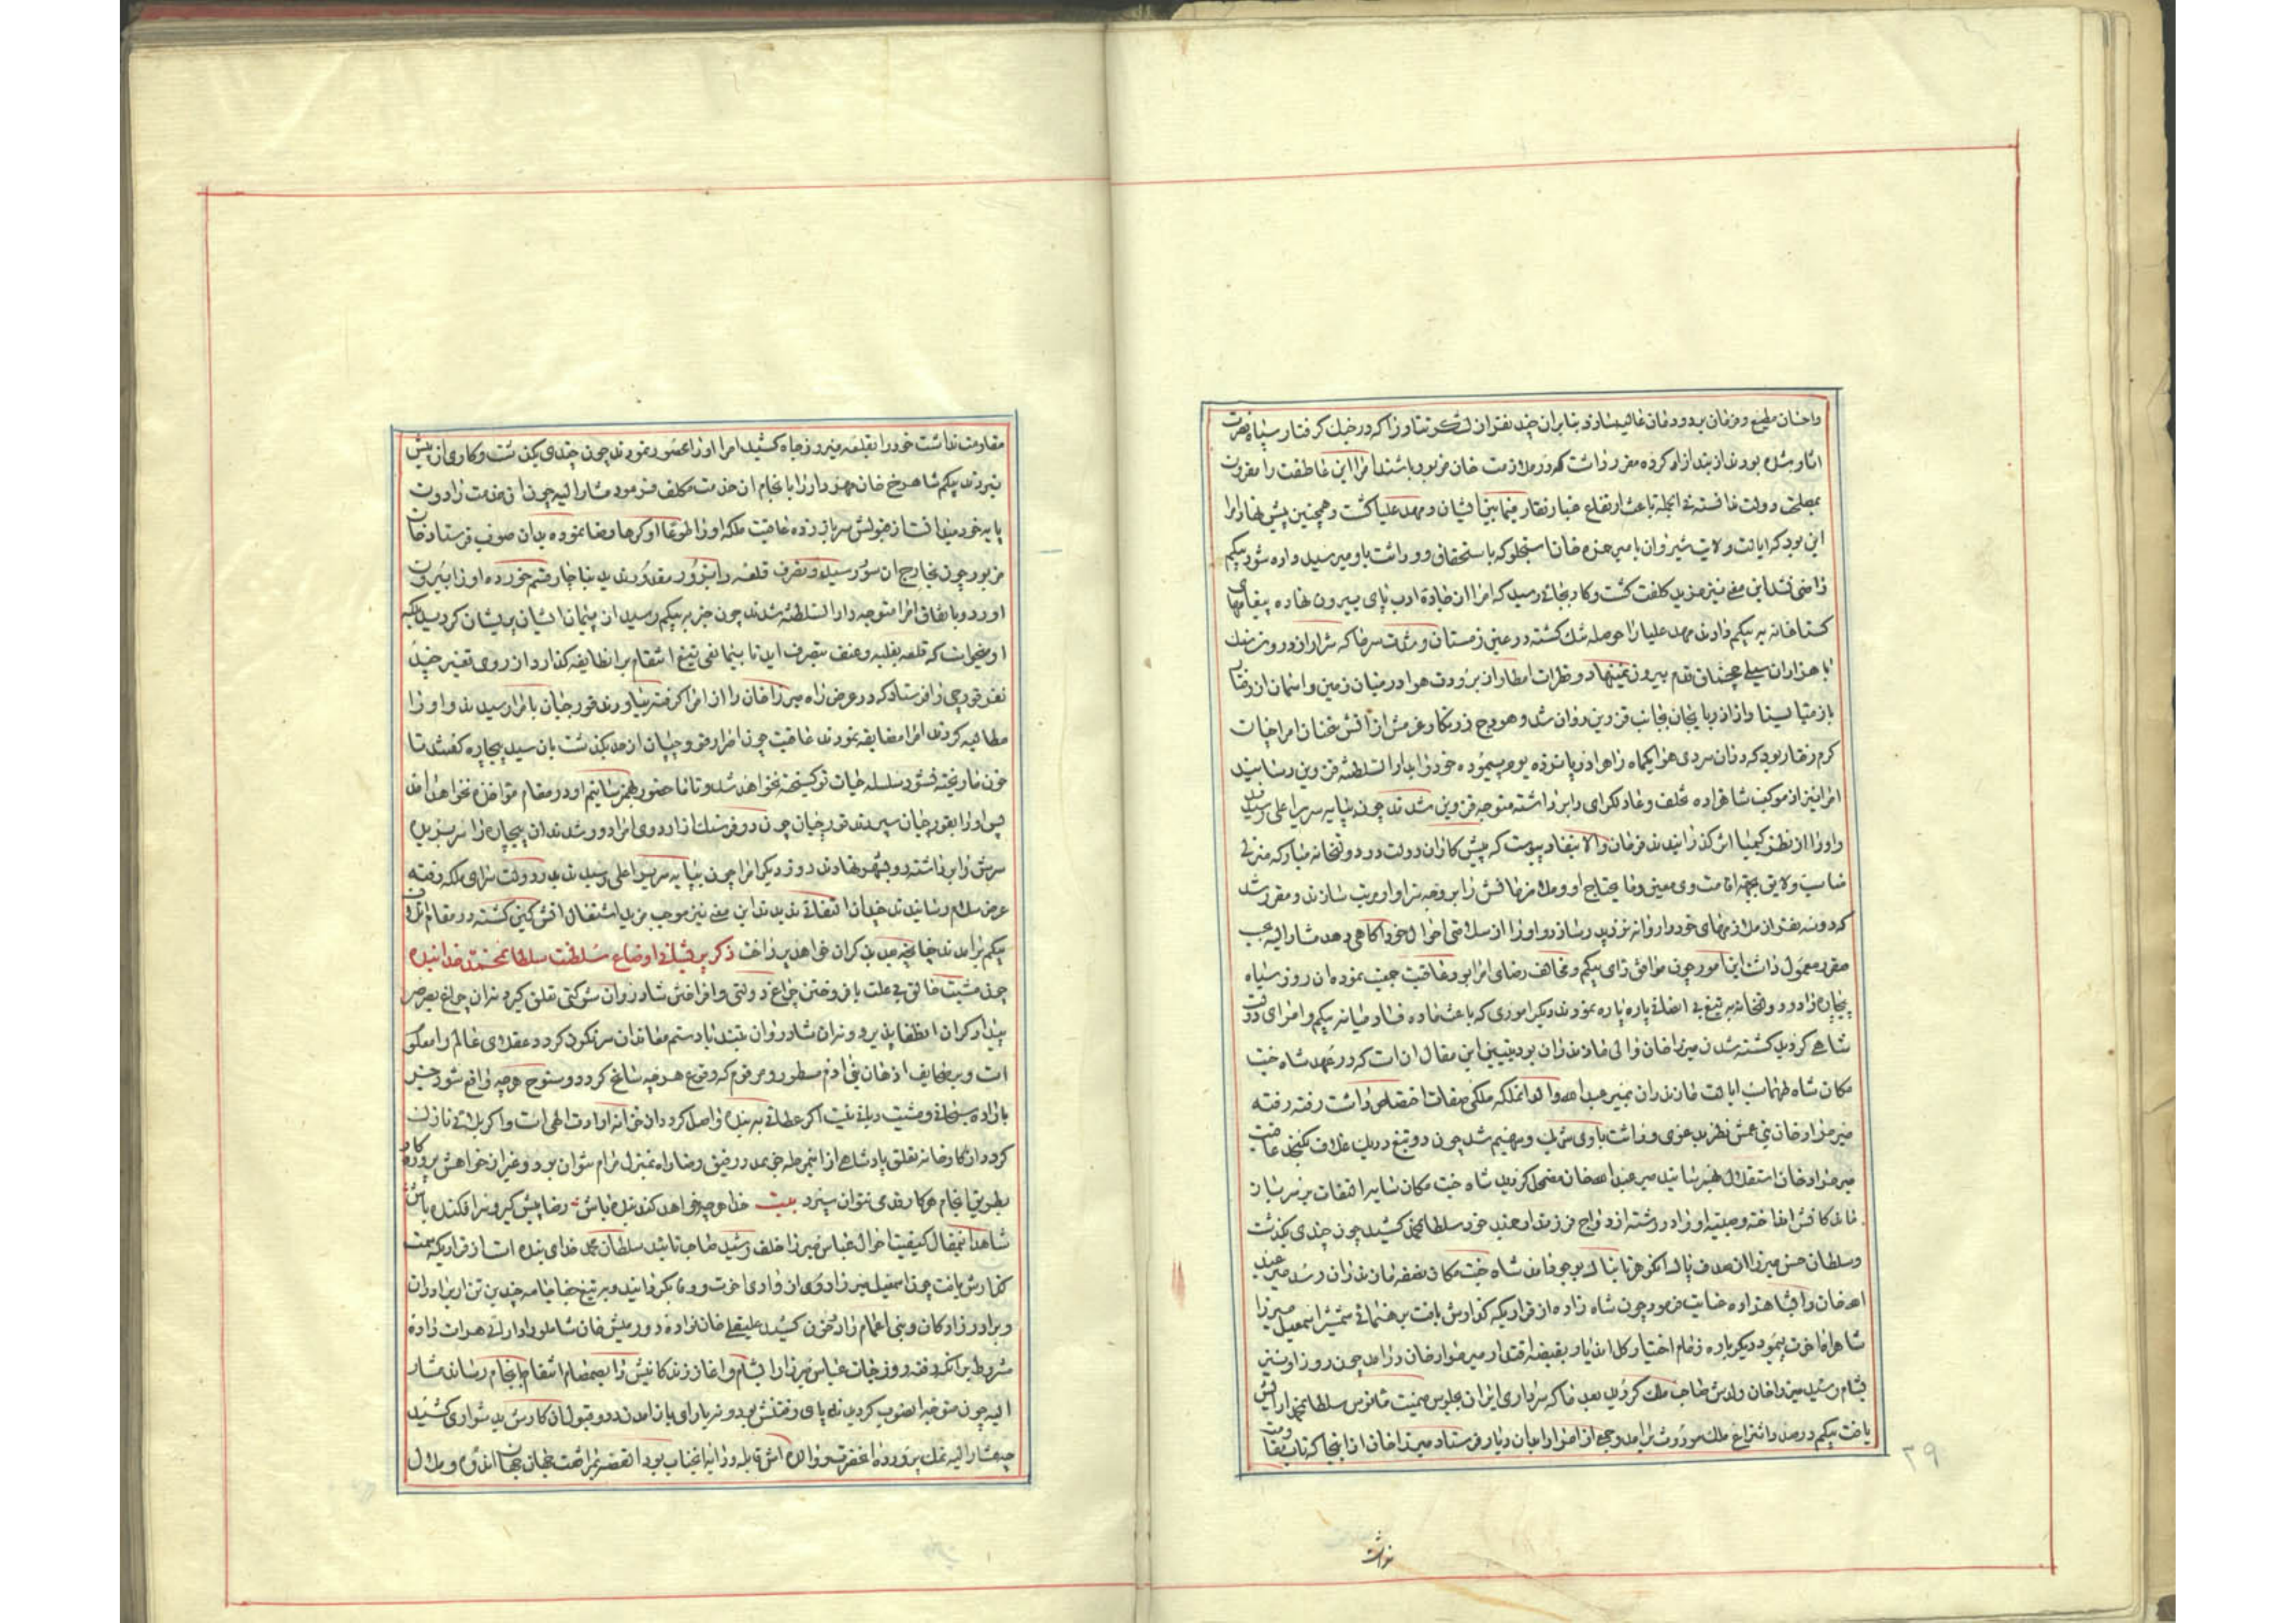 واخان مطیع و فرمان بر دودمان عالیشان بنابران چند نفر از لشکر که در جنک کرفتار سپاه نصرت
اثار شده بودند از بند ازاد کرده مقرر داشت که در ملازمت خان مزبور باشند امرا این عاطفت را مقرون
بمصلحت دولت ندانسته فی الجمله باعث ارتفاع غبار نقار فیمابین ایشان و مهد علیا کشت و همچنین پیش نهاد امرا
این بود که ایالت ولایت شیروان بامیر حمزه خان استجلو که باستحقاق و وراثت باو میرسید داده شود بیکم
راضی نشد این معنی نیز مزید کلفت کشت و کار بجائی رسید که امرا از جاده ادب پای بیرون نهاده پیغامهای
کستاخانه به بیکم دادند مهد علیا را حوصله تنک کشته در عین زمستان و شدت سرما که شرار از درون سنک
با هزاران سیلی چخماق قدم بیرون نمینهاد و قطرات امطار از برودت هوا در میان زمین و اسمان از رفتار
باز می ایستاد از اذربایجان بجانب قزوین روان شد و هودج زرنکار عزمش از اتش عنان امراجیات
کرم رفتار بود که در ان سردی هوا یکماه راه را در پانزده یوم پیموده خود را بدار السلطنه قزوین رسانید
امرا نیز از موکب شاهزاده تخلف و عادلکرای را برداشته متوجه قزوین شدند چون بپایه سریر اعلی رسیدند
و او را از نظر کیمیا اثر کذرانیدند فرمان والا بنفاذ پیوست که پیش کاران دولت در دولتخانه مبارکه منزلی
مناسب و لایق بجهة اقامت وی معین و مایحتاج او و ملازمانش را بر وجه سزاوار مرتب سازند و مقرر شد
که دو سه نفر از ملازمهای خود را روانه نزد پدر سازد و او را از سلامتی احوال خود اکاهی دهد مشارالیه بموجب
مقرر معمول داشت این امور چون موافق رای بیکم و مخالف رضای امرا بود عاقبت جمعیت نموده ان روز سیاه
بیچاره را در دولتخانه به تیغ بی اتفاقی پاره پاره نمودند دیکر اموری که باعث ماده فساد میانه بیکم و امرای دولت
شاهی کردید کشته شدن میرزا خان والی مازندران بود تبیین این مقال ان است که در عهد شاه جنت
مکان شاه طهماسب ایالت مازندران بمیر عبدالله والد انملکه ملکی صفات اختصاص داشت رفته رفته
میر مراد خان بنی عمش نظر بدعوی وراثت با وی شریک و سهیم شد چون دو تیغ در یک غلاف نکنجد عاقبت
میر مراد خان استقلال بهمرسانید میر عبدالله خان مضمحل کردید شاه جنت مکان سایه التفات بر سر بازماندکانش
انداخته و صبیه او را در رشته ازدواج فرزند ارجمند خود سلطان محمد کشید چون چندی بکذشت
و سلطان حسن میرزا از صدف پاک انکوهر تابناک بوجود امد شاه جنت مکان نصفه مازندران رسد میر عبد
الله خان را بشاهزاده عنایت فرمود چون شاه زاده از قراریکه کذارش یافت برهنمائی شمشیر اسمعیل میرزا
شاهراه اخرت پیمود دیکر باره زمام اختیار کل اندیار بقبضه اقتدار میر مراد خان درامد چون روز او نیز
بشام رسید میرزا خان ولدش صاحب ملک کردید بعد ماکه سرداری ایران بجلوس میمنت مانوس سلطان محمد ارایش
یافت بیکم درصدد انتزاع ملک موروث برامد و جمعی از امرا را بدان دیار فرستاد میرزا خان از انجا که تاب مقاومت
نداشت
۲۹
مقاومت نداشت خود را بقلعه فیروزجاه کشید امرا او را محصور نمودند چون چندی بکذشت و کاری از پیش
نبردند بیکم شاهرخ خان مهردار را بانجام ان خدمت مکلف فرمود مشارالیه چون ان خدمت را دون
پایه خود میدانست از قبولش سر باز زده عاقبت ملکه او را طوعا او کرها رضا نموده بدان صوب فرستاد خان
مزبور چون بخارج ان سور رسید و تصرف قلعه را بزور مقدور ندید بناچار قسم خورده او را بیرون
اورد و باتفاق امرا متوجه دار السلطنه شدند چون خبر به بیکم رسید از پیمان ایشان پریشان کردید بلکه
او میخواست که قلعه بغلبه و عنف بتصرف اید تا بینمانعی تیغ انتقام بر انطایفه کذارد از روی تغیر چند
نفر قورچی را فرستاد که در عرض راه میرزا خان را از امرا کرفته بیاورند قورچیان بامرا رسیدند و او را
مطالبه کردند امرا مضایقه نمودند عاقبت چون اصرار قورچیان از حد بکذشت بان سید بیچاره کفتند تا
خون ما ریخته نشود سلسله حیات تو کسیخته نخواهد شد و تا ما حضور بهم رسانیم او در مقام مواخذه نخواهد امد
پس او را بقورچیان سپردند قورچیان چون دو فرسنک از اردوی امرا دور شدند ان بیچاره را سر بریده
سرش را برداشته رو بشهر نهادند روز دیکر امرا چون بپایه سریر اعلی رسیدند بدر دولت سرای ملکه رفته
عرض سلام رسانیدند چندان التفاتی ندیدند این معنی نیز موجب مزید اشتعال اتش کین کشته در مقام اتلاف
بیکم برامدند چنانچه بعد بذکر ان خواهد پرداخت ذکر برخی از اوضاع سلطنت سلطان محمد خدابنده
چون مشیت خالق بی علت بافروختن چراغ دولتی و افراختن شادروان شوکتی تعلق کیرد نه ان چراغ بصرصر
بیدادکران انطفا پذیرد و نه ان شادروان بتندباد ستم معاندان سرنکون کردد عقلای عالم را معلوم
است و بر صحایف اذهان بنی ادم مسطور و مرقوم که وقوع هرچه سانح کردد و سنوح هرچه واقع شود جز
باراده سبحانی و مشیت ربانی نیست اکر عطائی به بنده واصل کردد از خزانه ارادت الهی است و اکر بلائی نازل
کردد از کارخانه تعلق پادشاهی از اینمرحله جز بمدد رفیق رضا راه بمنزل مرام نتوان برد و غیر از خواهش پروردکار
بطریق انجام هر کار قدمی نتوان سپرد بیت خدا هرچه خواهد کند بنده باش رضا پیش کیر و سر افکنده باش
شاهد اینمقال کیفیت احوال عباس میرزا خلف رشید صاحب تائید سلطان محمد خدای بنده است از قراریکه سمت
کذارش یافت چون اسمعیل میرزا روی از وادی اخرت و روز جزا بکردانید و بر تیغ جفا جامه چندین تن از برادران
و برادر زادکان و بنی اعمام را در خون کشید علیقلی خان نواده دورمیش خان شاملو را دارائی هرات داده
مشروط بر انکه رفته روز حیات عباس میرزا را بشام و اغاز زندکانیش را بصمصام انتقام بانجام رساند مشار
الیه چون متوجه انصوب کردید نه پای رفتنش بود و نه یارای باز امدن در قبول ان کارش بد شواری کشید
چه مشارالیه نمک پرورده انحضرت و والده اش قابله و دایه انجناب بود القصه بمرافقت جهان جهان اندوه و ملال